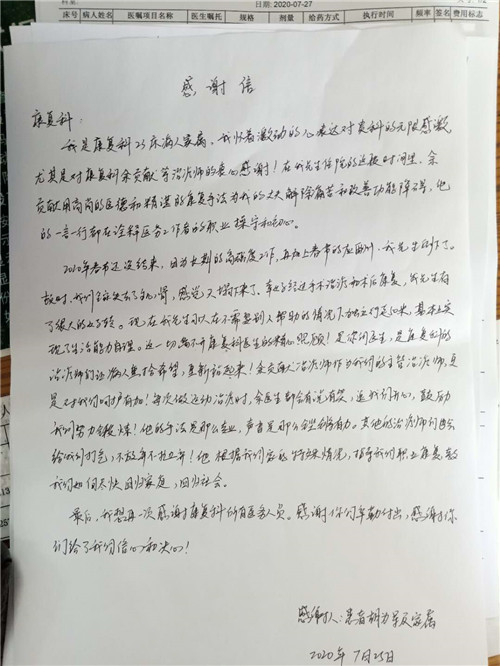 日期: 2020-07-27
床号 病人姓名 医嘱项目名称 医生嘱托 规格 剂量 给药方式 执行时间 频率 签名 费用标志
感谢信
康复科:
我是康复科23床病人家属。我怀着激动的心表达对贵科的无限感激,
尤其是对康复科余贡献等治疗师的衷心感谢!在我先生住院的这段时间里,余
贡献用高尚的医德和精湛的康复手法为我的丈夫解除痛苦和改善功能障碍,他
的一言一行都在诠释医务工作者的职业操守和初心。
2020年春节还没结束,因为长期的高强度工作,再加上春节的应酬,我先生倒下了。
故此时,我们全家失去了主心骨,感觉天塌下来了。幸好经过手术治疗和术后康复,我先生有
了很大的好转。现在我先生可以在不需要别人帮助的情况下独立行走10米,基本上实
现了生活能力自理。这一切离不开康复科医生的精心照顾!是你们医生,是康复科的
治疗师们让病人重拾希望,重新站起来!余贡献治疗师作为我们的主管治疗师,更
是对我们呵护有加!每次做运动治疗时,余医生都会有说有笑,逗我们开心,鼓励
我们努力锻炼!他的手法是那么专业,声音是那么铿锵有力。其他的治疗师们也会
给我们打气,不放弃不抛弃!他根据我们家的特殊情况,指导我们职业康复,教
我们如何尽快回归家庭,回归社会。
最后,我想再一次感谢康复科所有医务人员。感谢你们辛勤付出,感谢你
们给了我们信心和决心!
感谢人:患者胡力 及家属
2020年 7月25日